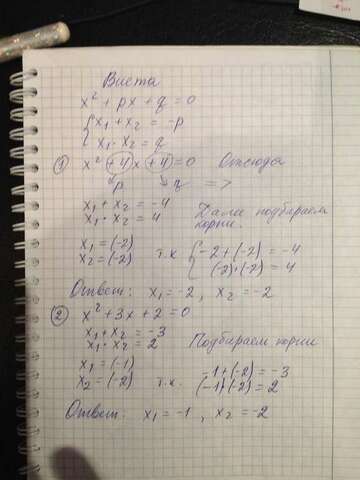 Виета
x² + px + q = 0
{ x₁ + x₂ = -p
x₁ · x₂ = q
① x² +4 x +4 = 0 Отсюда
p q =>
x₁ + x₂ = -4
x₁ · x₂ = 4 Далее подбираем корни.
x₁ = (-2)
x₂ = (-2) т.к { -2 + (-2) = -4
(-2)·(-2) = 4
Ответ: x₁ = -2, x₂ = -2
② x² + 3x + 2 = 0
x₁ + x₂ = -3
x₁ · x₂ = 2 Подбираем корни
x₁ = (-1)
x₂ = (-2) т.к. -1 + (-2) = -3
(-1)·(-2) = 2
Ответ: x₁ = -1, x₂ = -2